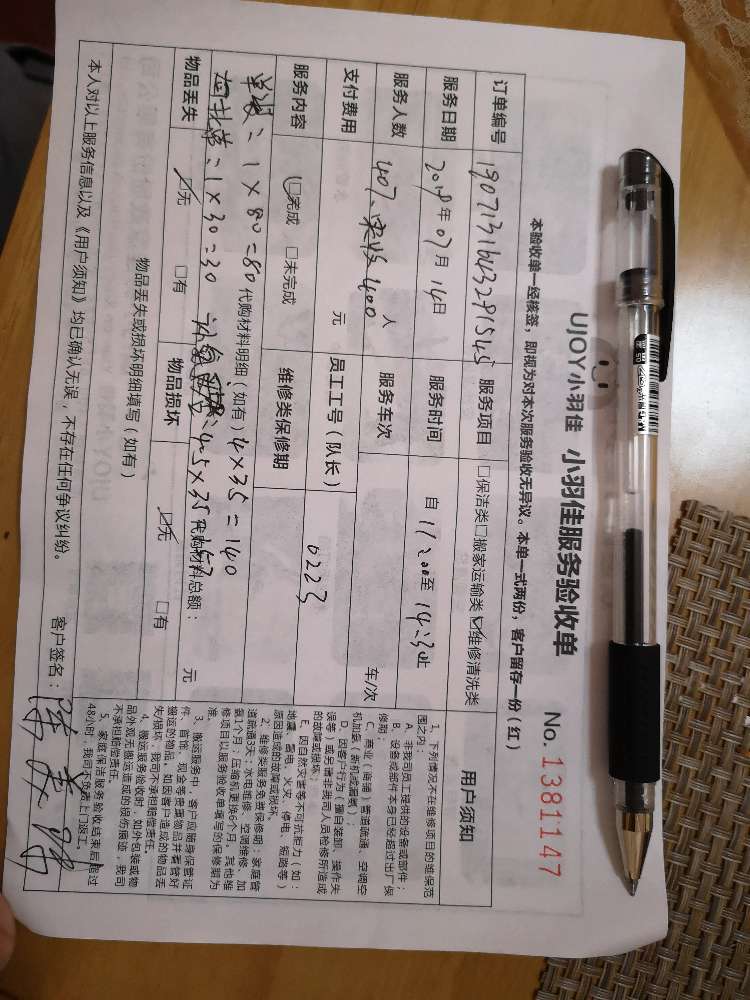 UJOY小羽佳 小羽佳服务验收单 No.1381147
本验收单一经核签，即视为对本次服务验收无异议。本单一式两份，客户留存一份（红）
订单编号 服务项目 □保洁类□搬家运输类☑维修清洗类 用户须知
服务日期 2019年07月14日 服务时间 自11:00至14:30止
服务人数 407 400 人 服务车次 车/次
支付费用 元 员工工号（队长） 0223
服务内容 ☑完成 □未完成 维修类保修期
代购材料明细（如有） 4×35=140
=1×80=80
=1×30=30
代购材料总额： 元
物品丢失 ☑无 □有 物品损坏 ☑无 □有
物品丢失或损坏明细填写（如有）
本人对以上服务信息以及《用户须知》均已确认无误，不存在任何争议纠纷。 客户签名：
1、下列情况不在维修项目的维保范
围之内：
A、非我司员工提供的设备或部件；
B、设备或部件本身已经超过出厂保
修期；
C、商业（商铺）管道疏通、空调空
机加氨（新机或漏氟）；
D、因客户行为（擅自装卸、操作失
误等）或另请非我司人员检修所造成
的故障或损坏；
E、因自然灾害等不可抗拒力（如：
地震、雷电、火灾、停电、短路等）
原因造成的故障或损坏。
2、维修类服务免费保修期：家庭管
道疏通3天；水电维修、空调维修、加
氨1个月；压缩机更换6个月，其他维
修项目以服务验收单填写的保修期为
准。
3、搬运服务中，客户应随身保管证
件、首饰、现金等贵重物品并看管好
搬运的物品，如因客户造成的物品丢
失/损坏，我司不承担赔偿责任。
4、搬运服务验收时，如外包装或物
品外观无搬运造成的损伤痕迹，我司
不承担赔偿责任。
5、家庭保洁服务验收结束后超过
48小时，我司不负责上门返工。